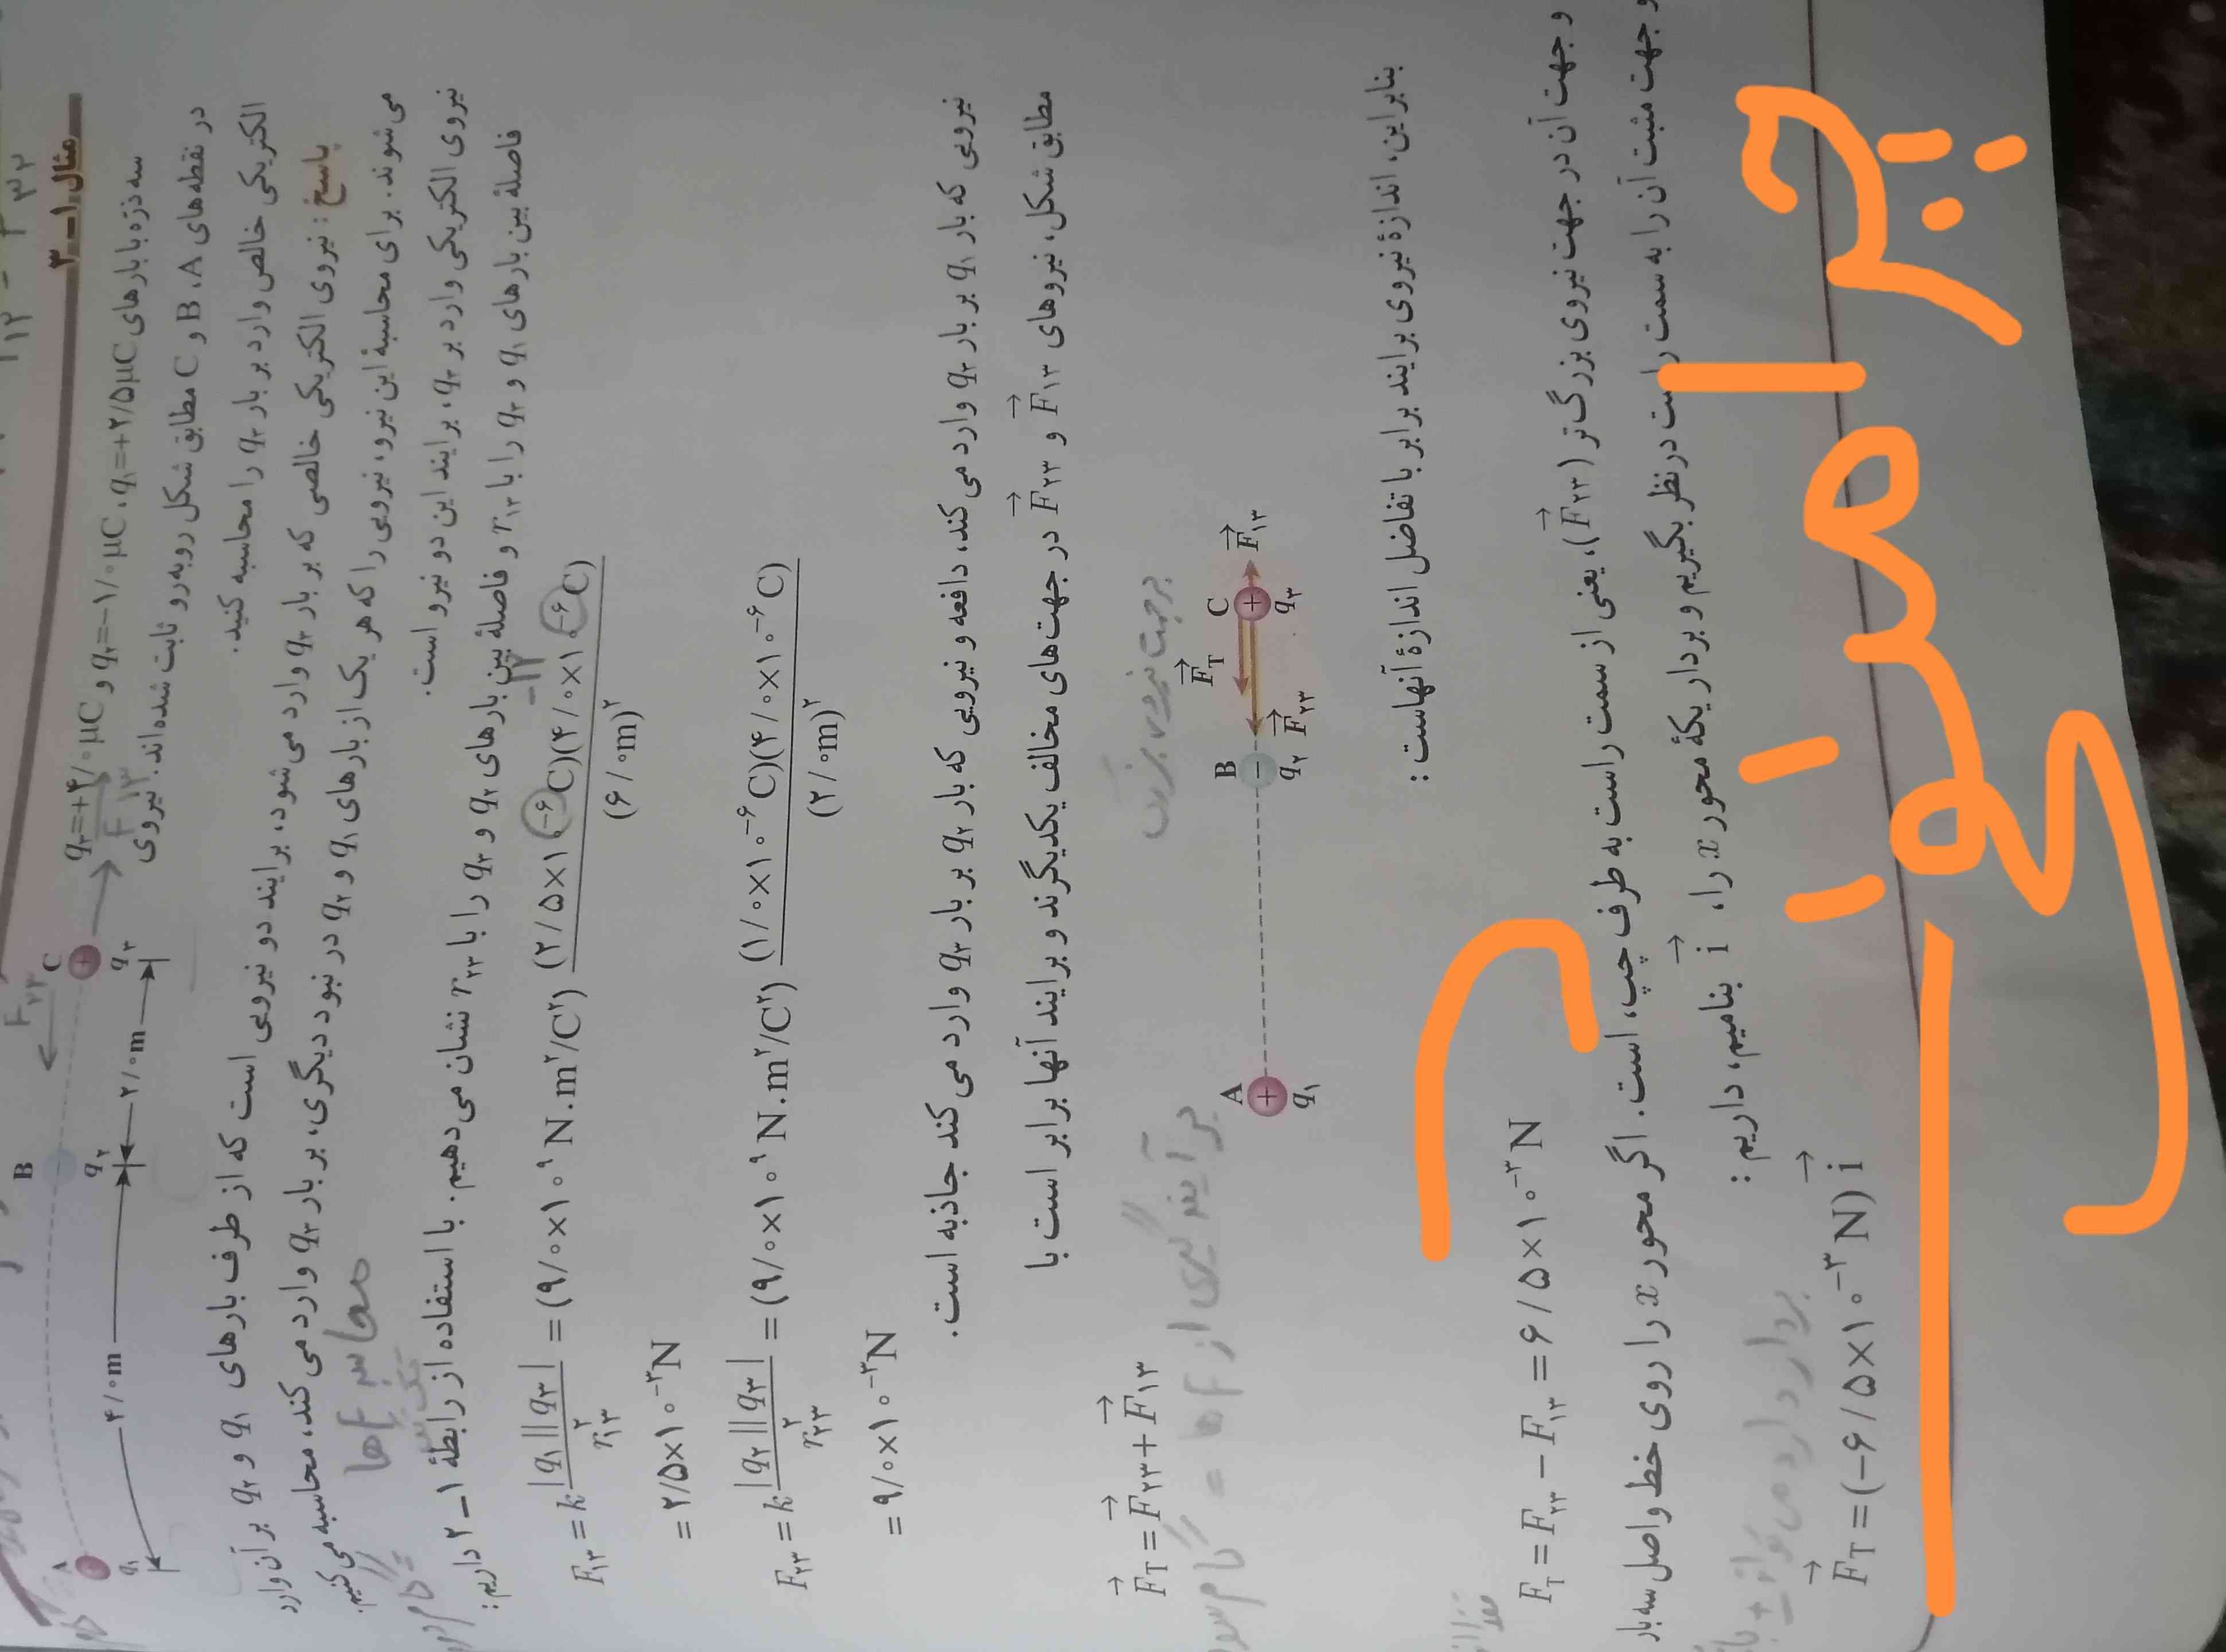 مثال ۱-۳
سه ذرّه با بارهای q₁=+۲/۵μC، q₂=−۱/۰μC و q₃=+۴/۰μC
در نقطه‌های A، B و C مطابق شکل روبه‌رو ثابت شده‌اند. نیروی
الکتریکی خالص وارد بر بار q₃ را محاسبه کنید.
A B C
q₁ q₂ q₃
۴/۰m ۲/۰m
F₂₃
F₁₃
پاسخ: نیروی الکتریکی خالصی که بر بار q₃ وارد می‌شود، برایند دو نیرویی است که از طرف بارهای q₁ و q₂ بر آن وارد
می‌شوند. برای محاسبهٔ این نیرو، نیرویی را که هر یک از بارهای q₁ و q₂ در نبود دیگری، بر بار q₃ وارد می‌کند، محاسبه می‌کنیم.
نیروی الکتریکی وارد بر q₃، برایند این دو نیرو است.
محاسبه Fها
فاصلهٔ بین بارهای q₁ و q₃ را با r₁₃ و فاصلهٔ بین بارهای q₂ و q₃ را با r₂₃ نشان می‌دهیم. با استفاده از رابطهٔ ۱-۲ داریم:
−۱۲
F₁₃ = k |q₁||q₃| / r₁₃² = (۹/۰×۱۰⁹ N.m²/C²) (۲/۵×۱۰⁻⁶C)(۴/۰×۱۰⁻⁶C) / (۶/۰m)²
= ۲/۵×۱۰⁻³N
F₂₃ = k |q₂||q₃| / r₂₃² = (۹/۰×۱۰⁹ N.m²/C²) (۱/۰×۱۰⁻⁶C)(۴/۰×۱۰⁻⁶C) / (۲/۰m)²
= ۹/۰×۱۰⁻³N
نیرویی که بار q₁ بر بار q₃ وارد می‌کند، دافعه و نیرویی که بار q₂ بر بار q₃ وارد می‌کند جاذبه است.
مطابق شکل، نیروهای F⃗₁₃ و F⃗₂₃ در جهت‌های مخالف یکدیگرند و برایند آنها برابر است با
F⃗T = F⃗₂₃ + F⃗₁₃
درجهت نیروی بزرگتر
گام سوم = برآیندگیری از Fها
A B F⃗T C
q₁ q₂ F⃗₂₃ q₃ F⃗₁₃
بنابراین، اندازهٔ نیروی برایند برابر با تفاضل اندازهٔ آنهاست:
FT = F₂₃ − F₁₃ = ۶/۵×۱۰⁻³N
و جهت آن در جهت نیروی بزرگ‌تر (F⃗₂₃)، یعنی از سمت راست به طرف چپ، است. اگر محور x را روی خط واصل سه بار
و جهت مثبت آن را به سمت راست در نظر بگیریم و بردار یکهٔ محور x را، i⃗ بنامیم، داریم:
F⃗T = (−۶/۵×۱۰⁻³N) i⃗